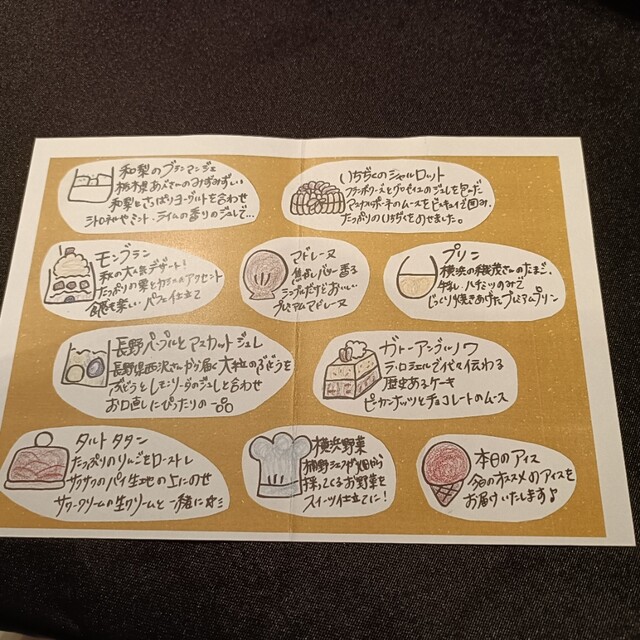 和梨のブランマンジェ
栃木県あべさんのみずみずしい
和梨とさっぱりヨーグルトを合わせ
シトロネやミント・ライムの香りのジュレで…
いちぢくのシャルロット
フランボワーズとグロゼイユのジュレを包んだ
マスカルポーネのムースをビスキュイで囲み、
たっぷりのいちぢくをのせました。
モンブラン
秋の大人気デザート!
たっぷりの栗とカシスのアクセント
食感も楽しいパフェ仕立て
マドレーヌ
焦がしバター香る
シンプルだけどおいしい
プレミアムマドレーヌ
プリン
横浜の機茂さんのたまご、
牛乳、ハチミツのみで
じっくり焼きあげたプレミアムプリン
長野パープルとマスカットジュレ
長野県西沢さんから届く大粒のぶどうを
ぶどうとレモンリーダのジュレと合わせ
お口直しにぴったりの一皿
ガトーアングルノワ
ラ・ロシェルで代々伝わる
歴史あるケーキ
ピーカンナッツとチョコレートのムース
タルトタタン
たっぷりのりんごをローストし
サクサクのパイ生地の上にのせ
サワークリームの生クリームと一緒に
横浜野菜
シェフが畑から
採ってくるお野菜を
スイーツ仕立てに!
本日のアイス
今日のオススメのアイスを
お届けいたします♪